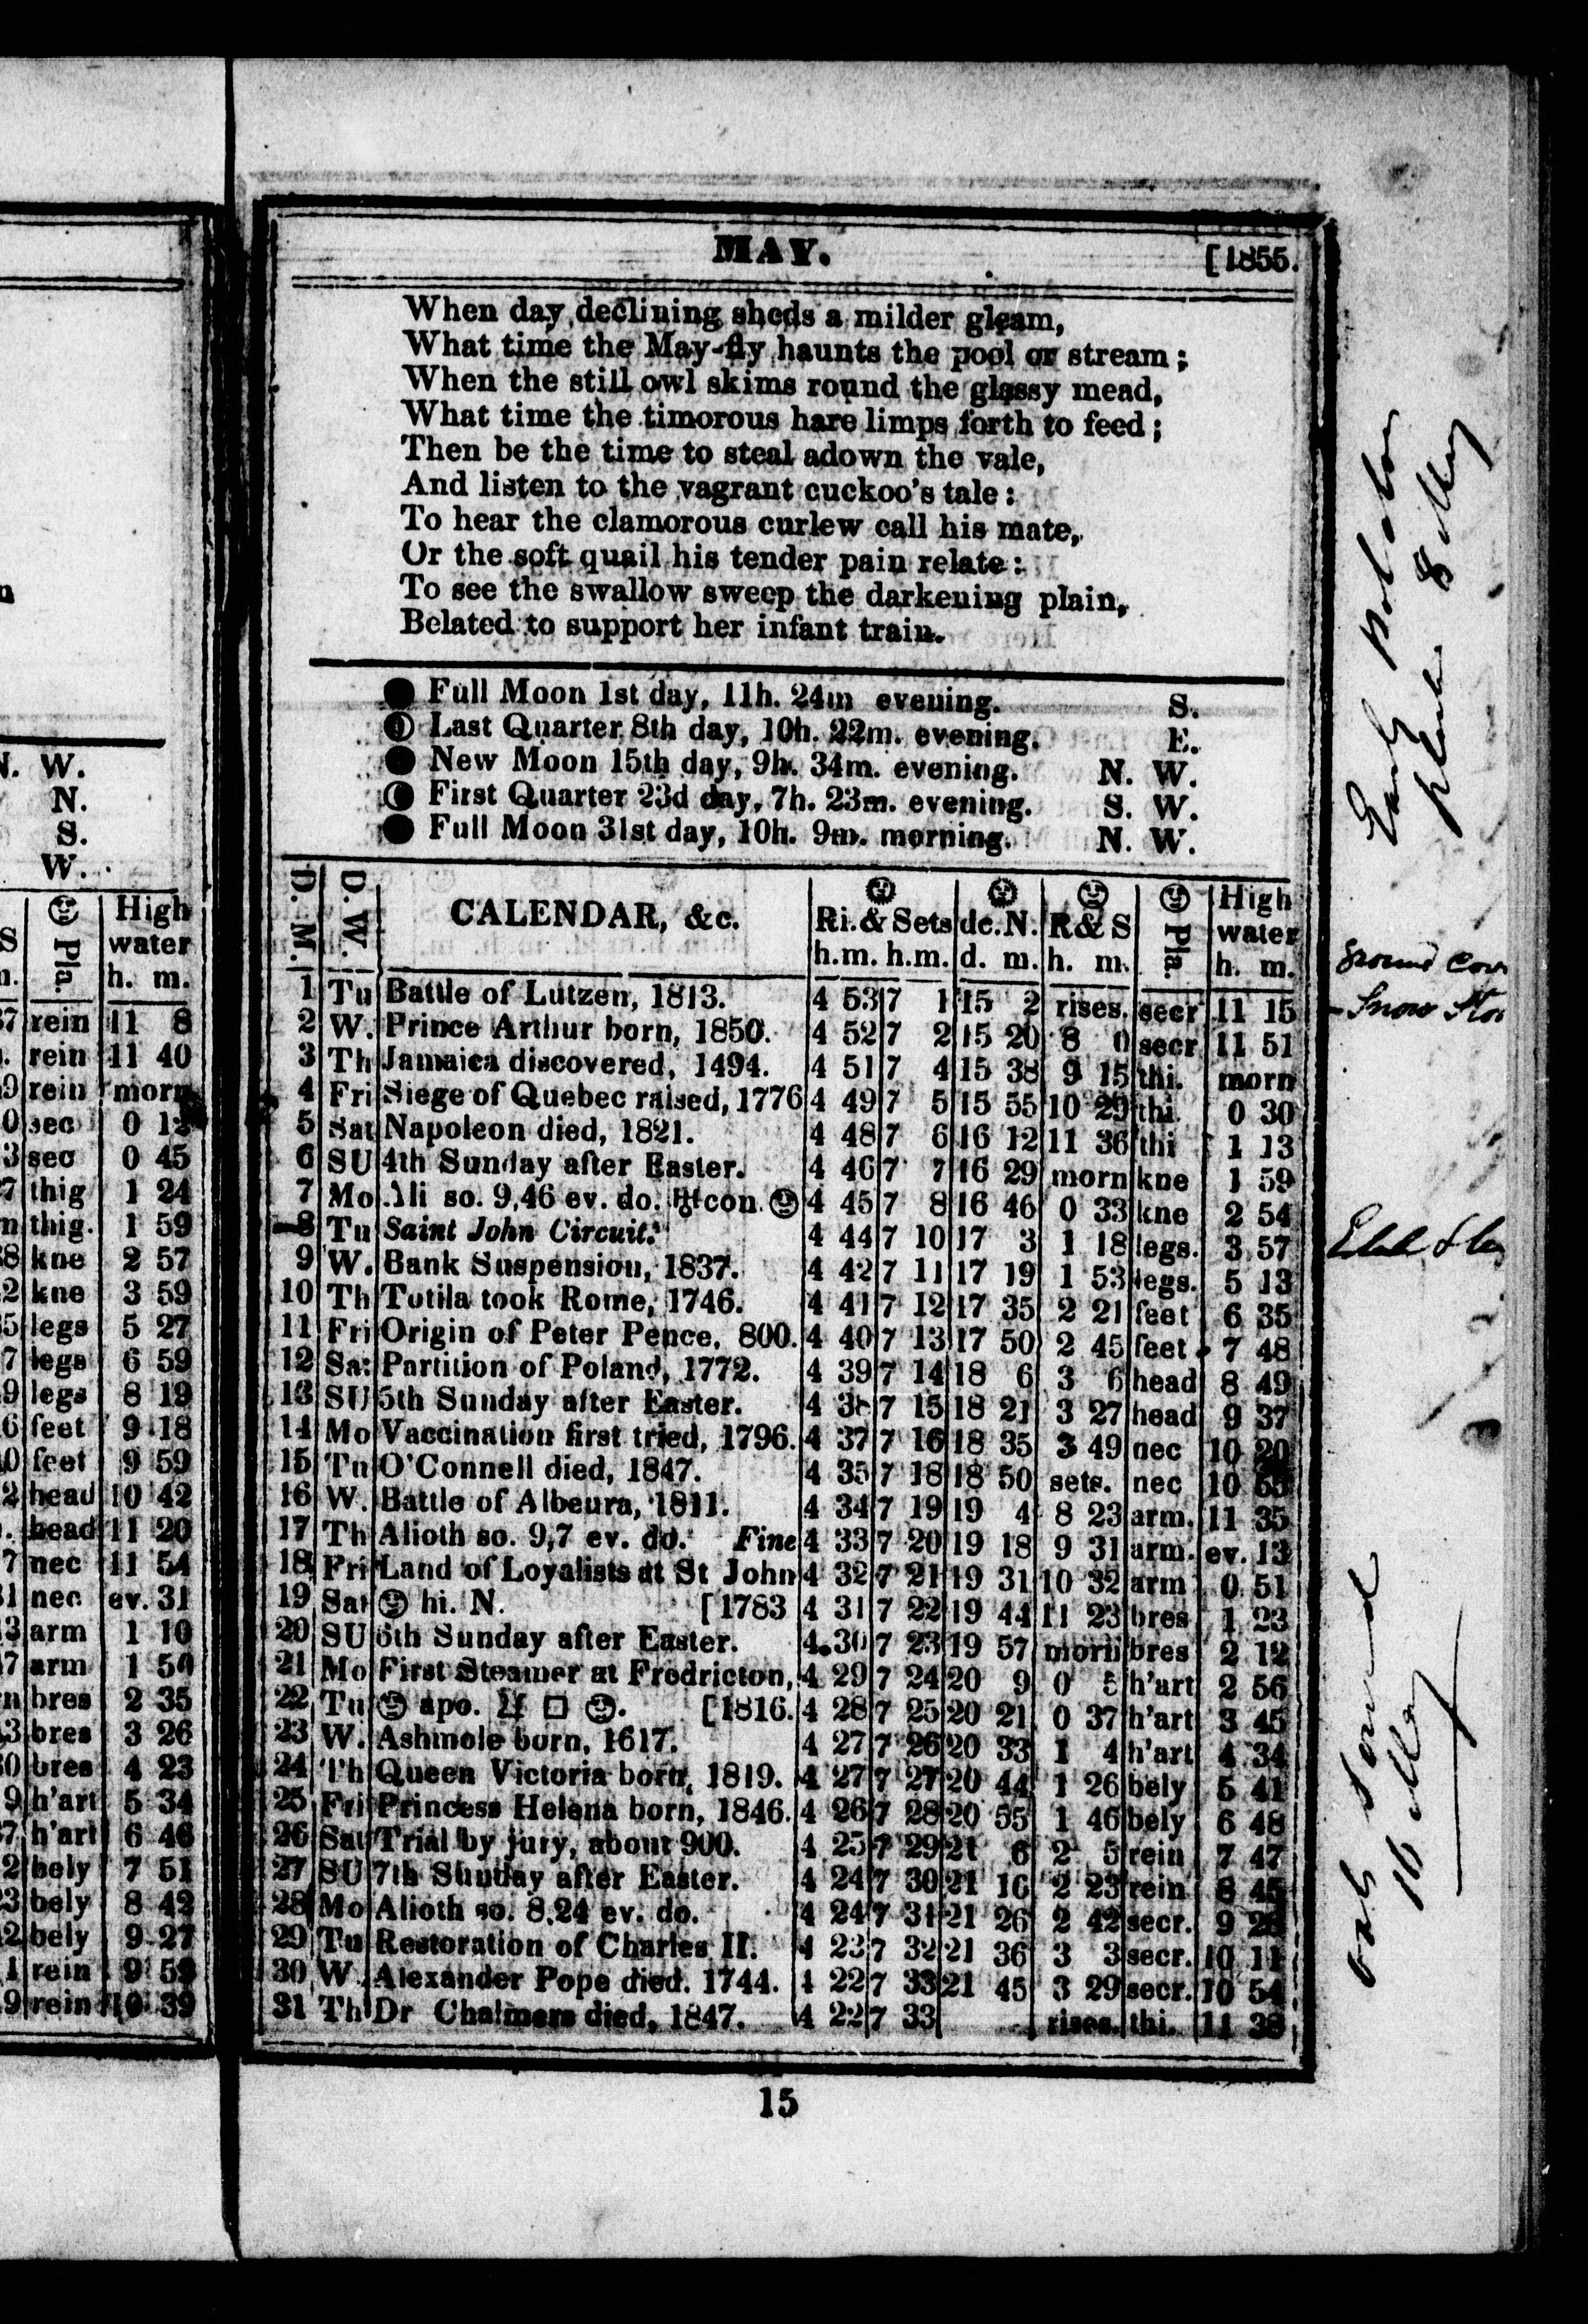 N. W.
N.
S.
W.
High
water
Pla.
h. m.
rein 11 8
rein 11 40
rein morn
sec 0 12
sec 0 45
thig 1 24
thig. 1 59
kne 2 57
kne 3 59
legs 5 27
legs 6 59
legs 8 19
feet 9 18
feet 9 59
head 10 42
head 11 20
nec 11 54
nec ev. 31
arm 1 10
arm 1 50
bres 2 35
bres 3 26
bres 4 23
h'art 5 34
h'art 6 46
bely 7 51
bely 8 42
bely 9 27
rein 9 59
rein 10 39
MAY. [1855.
When day declining sheds a milder gleam,
What time the May-fly haunts the pool or stream;
When the still owl skims round the glassy mead,
What time the timorous hare limps forth to feed;
Then be the time to steal adown the vale,
And listen to the vagrant cuckoo's tale:
To hear the clamorous curlew call his mate,
Or the soft quail his tender pain relate:
To see the swallow sweep the darkening plain,
Belated to support her infant train.
Full Moon 1st day, 11h. 24m evening. S.
Last Quarter 8th day, 10h. 22m. evening. E.
New Moon 15th day, 9h. 34m. evening. N. W.
First Quarter 23d day, 7h. 23m. evening. S. W.
Full Moon 31st day, 10h. 9m. morning. N. W.
D. M. D. W. CALENDAR, &c. Ri. & Sets dc. N. R & S Pla. High water
h.m. h.m. d. m. h. m. h. m.
1 Tu Battle of Lutzen, 1813. 4 53 7 1 15 2 rises. secr 11 15
2 W. Prince Arthur born, 1850. 4 52 7 2 15 20 8 0 secr 11 51
3 Th Jamaica discovered, 1494. 4 51 7 4 15 38 9 15 thi. morn
4 Fri Siege of Quebec raised, 1776 4 49 7 5 15 55 10 29 thi 0 30
5 Sat Napoleon died, 1821. 4 48 7 6 16 12 11 36 thi 1 13
6 SU 4th Sunday after Easter. 4 46 7 7 16 29 morn kne 1 59
7 Mo Ali so. 9,46 ev. do. ♅ con. 4 45 7 8 16 46 0 33 kne 2 54
8 Tu Saint John Circuit. 4 44 7 10 17 3 1 18 legs. 3 57
9 W. Bank Suspension, 1837. 4 42 7 11 17 19 1 53 legs. 5 13
10 Th Totila took Rome, 1746. 4 41 7 12 17 35 2 21 feet 6 35
11 Fri Origin of Peter Pence, 800. 4 40 7 13 17 50 2 45 feet 7 48
12 Sat Partition of Poland, 1772. 4 39 7 14 18 6 3 6 head 8 49
13 SU 5th Sunday after Easter. 4 38 7 15 18 21 3 27 head 9 37
14 Mo Vaccination first tried, 1796. 4 37 7 16 18 35 3 49 nec 10 20
15 Tu O'Connell died, 1847. 4 35 7 18 18 50 sets. nec 10 55
16 W. Battle of Albeura, 1811. 4 34 7 19 19 4 8 23 arm. 11 35
17 Th Alioth so. 9,7 ev. do. Fine 4 33 7 20 19 18 9 31 arm. ev. 13
18 Fri Land of Loyalists at St John 4 32 7 21 19 31 10 32 arm 0 51
19 Sat hi. N. [1783 4 31 7 22 19 44 11 23 bres 1 23
20 SU 6th Sunday after Easter. 4 30 7 23 19 57 morn bres 2 12
21 Mo First Steamer at Fredricton, 4 29 7 24 20 9 0 5 h'art 2 56
22 Tu apo. ♃ □ . [1816. 4 28 7 25 20 21 0 37 h'art 3 45
23 W. Ashmole born, 1617. 4 27 7 26 20 33 1 4 h'art 4 34
24 Th Queen Victoria born, 1819. 4 27 7 27 20 44 1 26 bely 5 41
25 Fri Princess Helena born, 1846. 4 26 7 28 20 55 1 46 bely 6 48
26 Sat Trial by jury, about 900. 4 25 7 29 21 6 2 5 rein 7 47
27 SU 7th Sunday after Easter. 4 24 7 30 21 16 2 23 rein 8 45
28 Mo Alioth so. 8,24 ev. do. 4 24 7 31 21 26 2 42 secr. 9 28
29 Tu Restoration of Charles II. 4 23 7 32 21 36 3 3 secr. 10 11
30 W. Alexander Pope died. 1744. 4 22 7 33 21 45 3 29 secr. 10 54
31 Th Dr Chalmers died, 1847. 4 22 7 33 rises. thi. 11 38
15
Early
ground
Snow